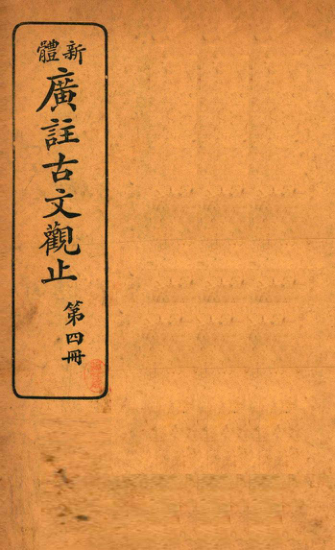 新體
廣註古文觀止
第四冊